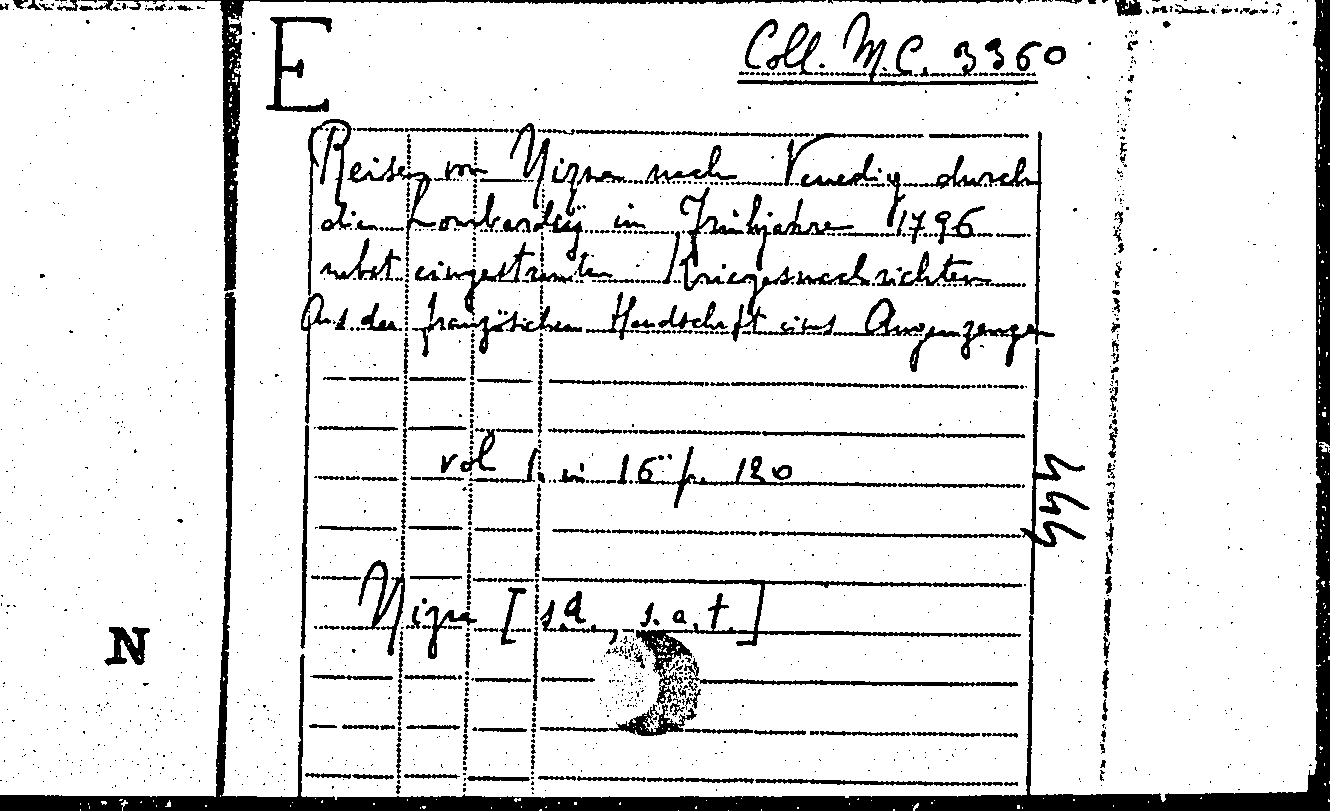 E
Coll. M.C. 3360
Reisen von Nizza nach Venedig durch
die Lombardey im Frühjahre 1796
nebst eingestreuten Kriegsnachrichten
Aus der französichen Handschrift eines Augenzeugen
vol 1. in 16° p. 120
444
Nizza [s.d., s.a.t.]
N